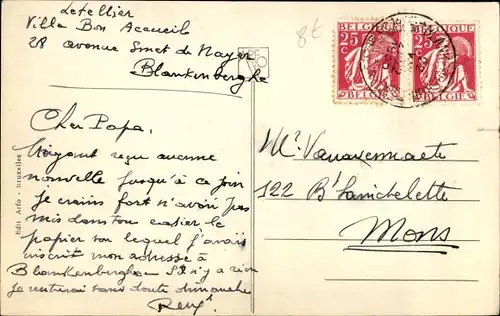 Letellier
Villa Bon Accueil
28 avenue Smet de Nayer
Blankenberghe
8t
BELGIQUE
25 c
BELGIE
BELGIQUE
25 c
BELGIE
Cher Papa,
N'ayant reçu aucune
nouvelle jusqu'à ce jour
je crains fort n'avoir pas
mis dans ton casier le
papier sur lequel j'avais
inscrit mon adresse à
Blankenberghe. S'il n'y a rien
je rentrerai sans doute dimanche
René
Mr Vanavermaete
122 Bd Sainctelette
Mons
Edit Arfo - Bruxelles